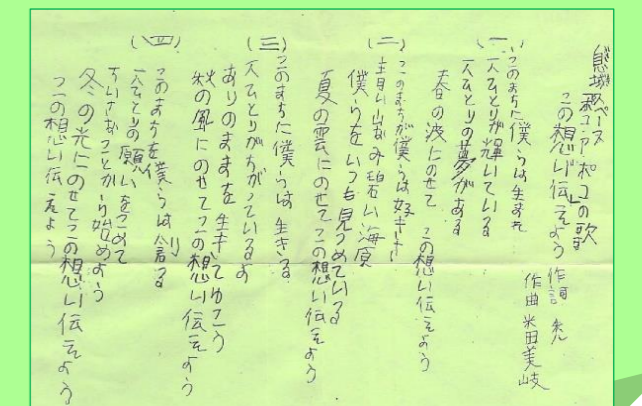 スペース
の歌
この想い伝えよう 作詞
作曲 米田美岐
(一)
このまちに僕らは生まれ
一人ひとりが輝いている
一人ひとりの夢がある
春の波にのせて この想い伝えよう
(二)
このまちが僕らは好きさ
青い山なみ碧い海原
僕らをいつも見つめている
夏の雲にのせて この想い伝えよう
(三)
このまちに僕らは生きる
一人ひとりがちがっているよ
ありのままを生きてゆこう
秋の風にのせてこの想い伝えよう
(四)
このまちを僕らは創る
一人ひとりの願いをこめて
ちいさなことから始めよう
冬の光にのせてこの想い伝えよう